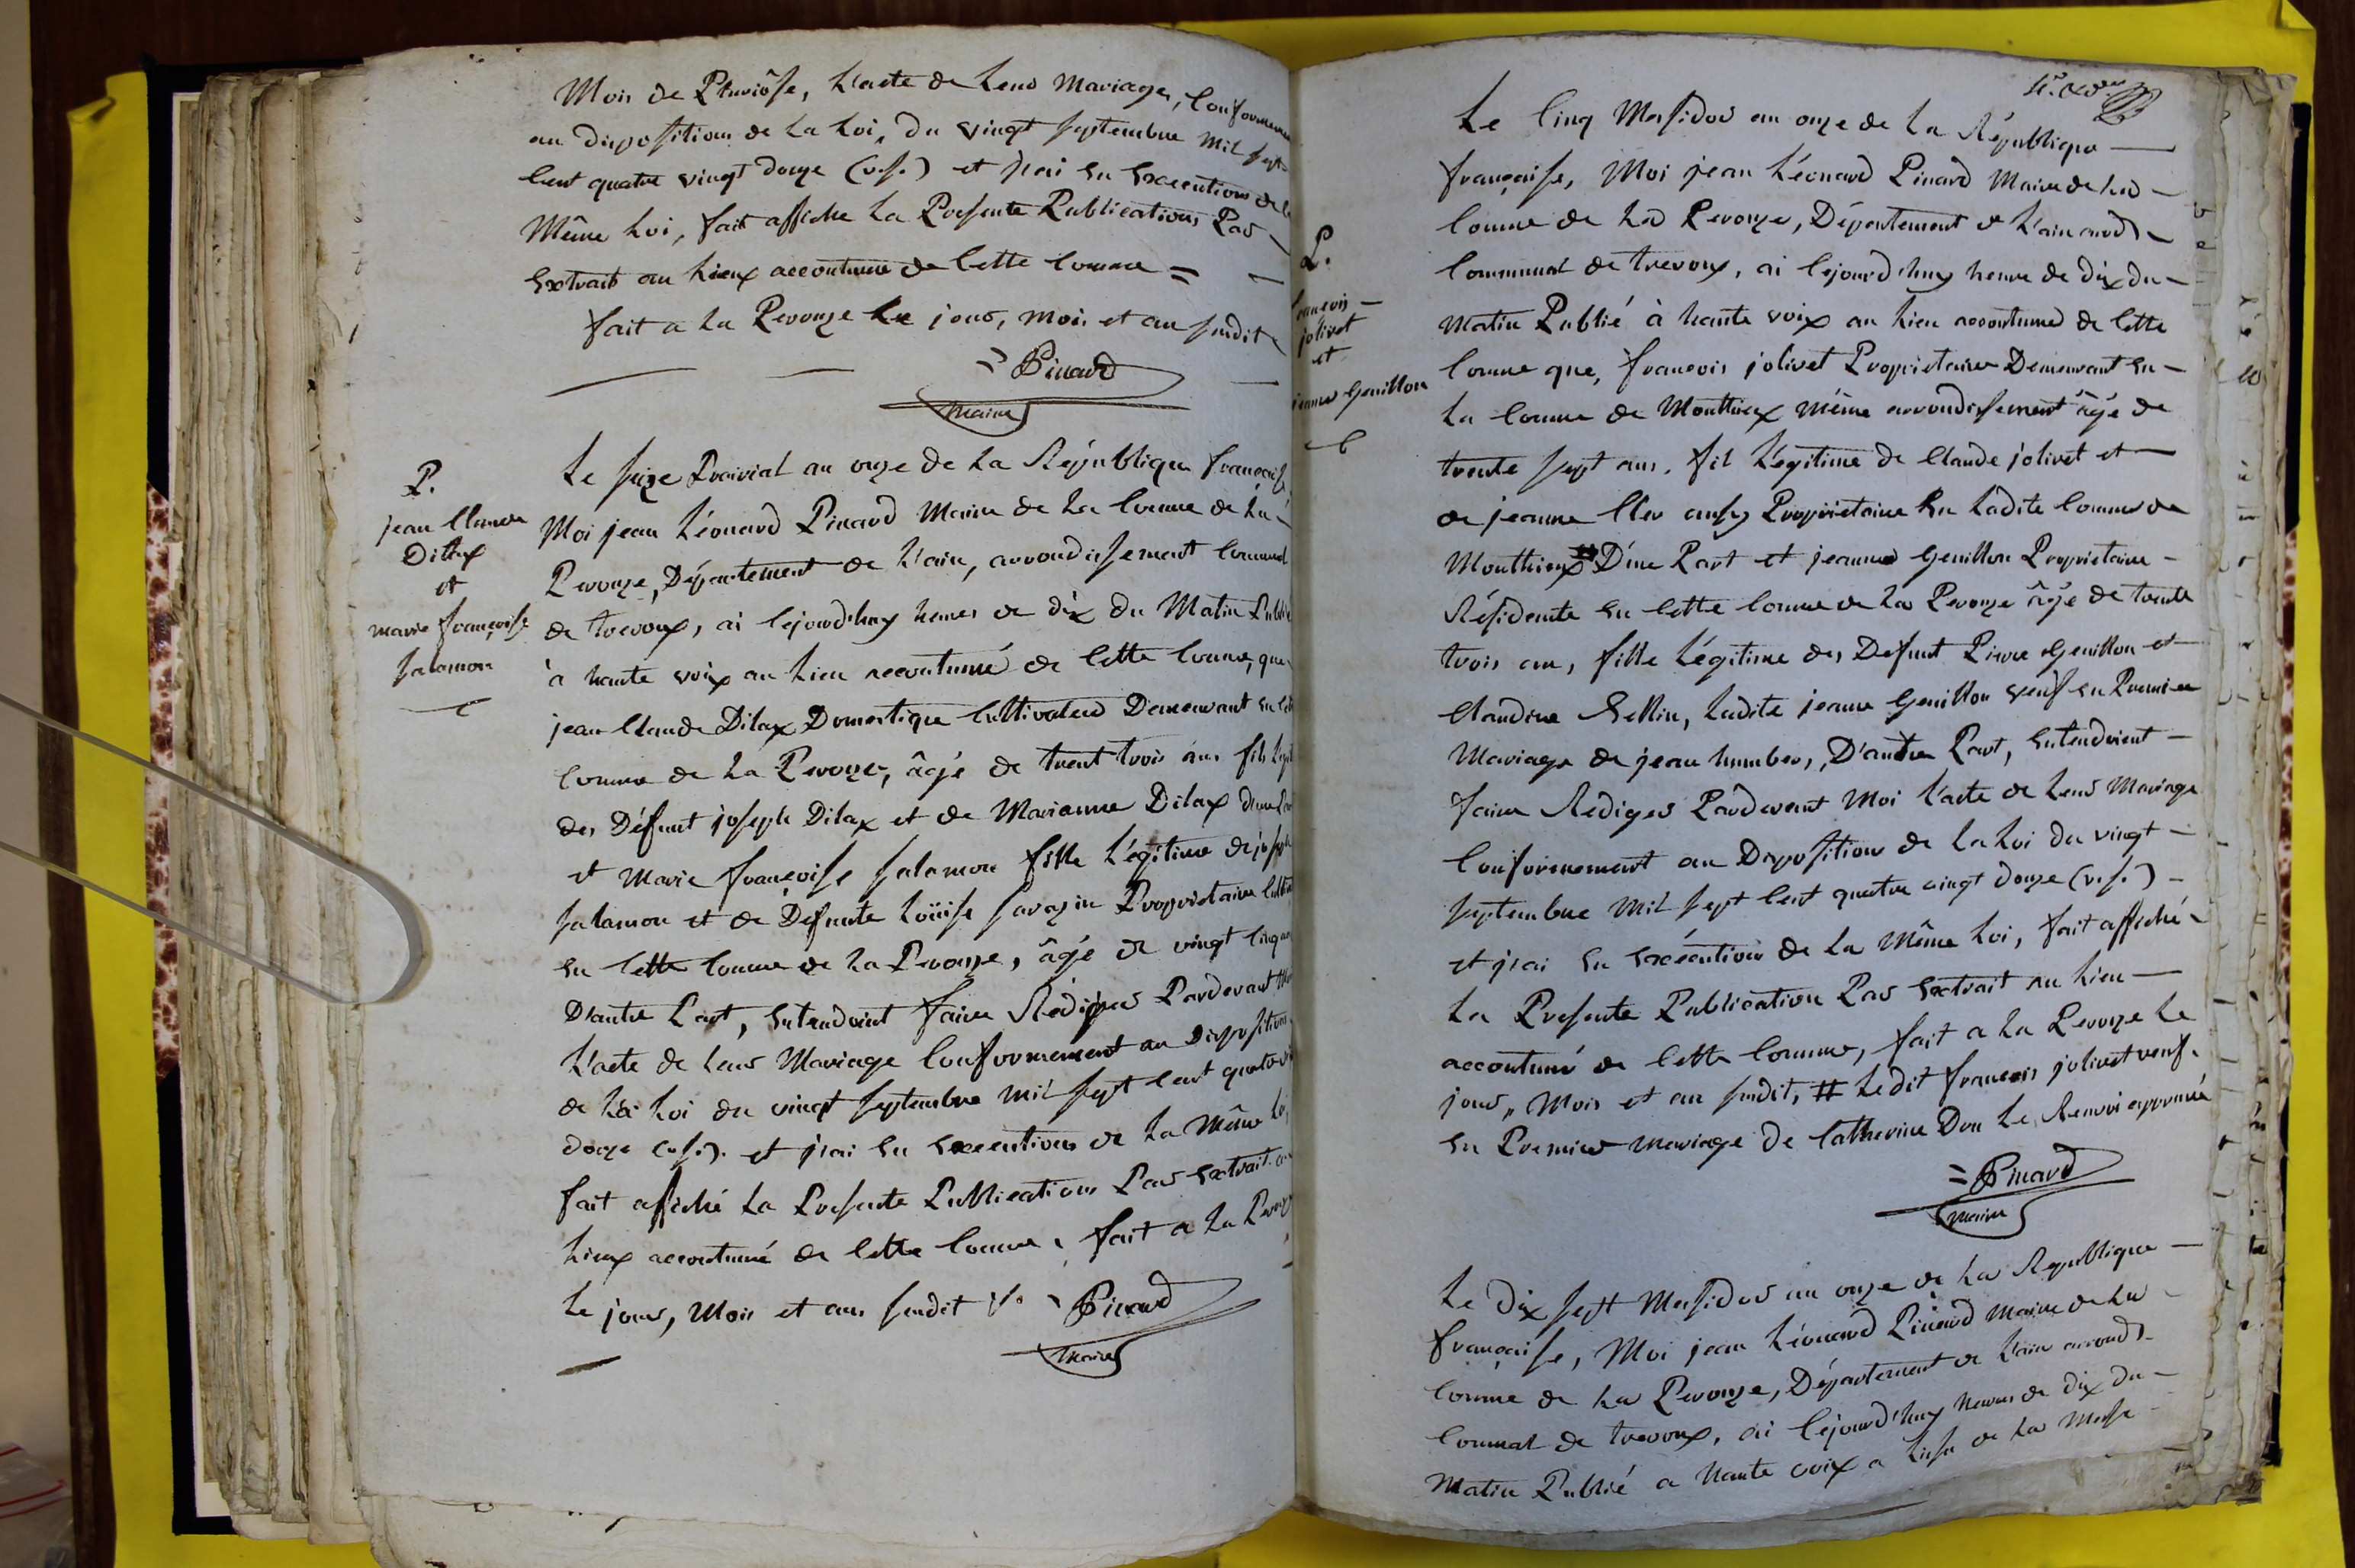 Mois de Pluviôse, L'acte de Leur Mariage, Conformement
au disposition de La Loi, du vingt septembre mil sept
Cent quatre vingt douze (v.s.) et j'ai En Execution de la
Même Loi, fait affiche La Presente Publication Par
Extrait au Lieux accoutumé de Cette Comune =
fait a La Perouze Le jour, mois et an susdit
= Pinard
maire
P.
jean Claude
Dillax
et
marie françoise
salamon
Le seize Prairial an onze de La République française
Moi jean Léonard Pinard Maire de La Comune de La
Perouze, Département de L'ain, arrondissement Communal
de trevoux, ai Cejourd'huy heures de dix du Matin Publié
à haute voix au Lieu accoutumé de Cette Comune, que
jean Claude Dilax Domestique Cultivateur Demeurant En Cette
Comune de La Perouze, âgé de trent trois ans fils Legit
des Défunt joseph Dilax et de Marianne Dilax d'une Part
et Marie françoise salamon fille Légitime de joseph
salamon et de Defunte Loüise sarazin Propriétaire
En Cette Comune de La Perouze, âgé de vingt Cinq ans
D'autre Part, Entendoint faire Rédiger Pardevant Moi
L'acte de Leur Mariage Conformement au Disposition
de La Loi du vingt septembre mil sept Cent quatre vi
douze (v.s.). et j'ai En Execution de La Même Loi,
fait affiché La Presente Publication Par Extrait au
Lieux accoutumé de Cette Comune, fait a La Perouze
Le jour, Mois et an susdit Pinard
Maire
P.
francois
jolivet
et
jeanne Genillon
Le Cinq Messidor an onze de La République
française, Moi jean Léonard Pinard Maire de La
Comune de La Perouze, Département de L'ain arrond
Communal de trevoux, ai Cejourd'huy heure de dix du
Matin Publié à haute voix au Lieu accoutumé de Cette
Comune que, francois jolivet Propriétaire Demeurant En
La Comune de Monthieux même arrondissement âgé de
trente sept ans, fil Légitime de Claude jolivet et
de jeanne Cler aussy Propriétaire En Ladite Comune de
Monthieux # D'une Part et jeanne Genillon Propriétaire
Résidente En Cette Comune de La Perouze âgé de trente
trois ans, fille Légitime des Defunt Pierre Genillon et
Claudine Bellin, Ladite jeanne Genillon veuf En Premier
Mariage de jean humber, D'autre Part, Entendoient
faire Rediger Pardevant Moi L'acte de Leur Mariage
Conformement au Disposition de La Loi du vingt
septembre mil sept Cent quatre vingt douze (v.s.)
et j'ai En Exécution de La Même Loi, fait affiché
La Presente Publication Par Extrait au Lieu
accoutumé de Cette Comune, fait a La Perouze Le
jour, Mois et an susdit, # Ledit francois jolivet veuf
En Premier mariage de Catherine Dru Le Renvoi approuvé
= Pinard
maire
Le Dix sept Messidor an onze de La Republique
française, Moi jean Léonard Pinard maire de La
Comune de La Perouze, Département de L'ain arrond
Comunal de trevoux, ai Cejourd'huy heures de dix du
Matin Publié a haute voix a Lisu de La Messe